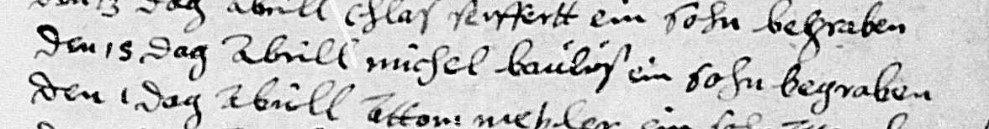 den 13 dag Abrill Chlas seiffertt ein sohn begraben
den 15 dag Abrill michel baülös ein sohn begraben
den 1 dag Abrill Attom metzler ein